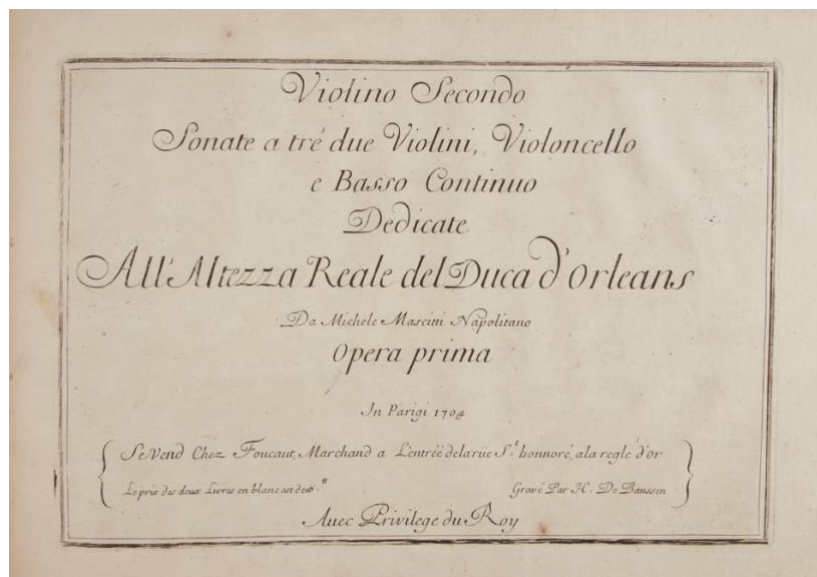 Violino Secondo
Sonate a tré due Violini, Violoncello
e Basso Continuo
Dedicate
All'Altezza Reale del Duca d'Orleans
Da Michele Mascitti Napolitano
Opera prima
In Parigi 1704
Se Vend Chez Foucaut, Marchand a L'entrée de la rüe S.t honnoré, a la regle d'or
Le prix des deux Livres en blanc est de
Gravé Par H. De Baussen
Avec Privilege du Roy